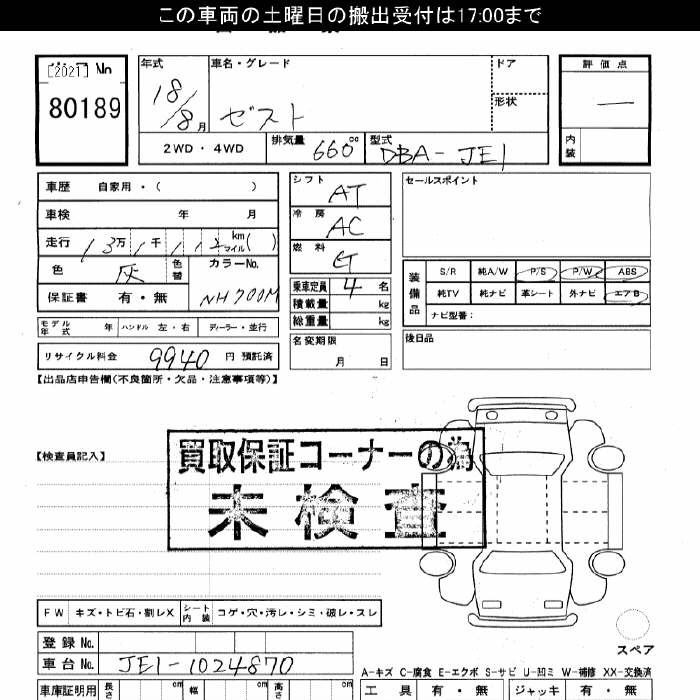 この車両の土曜日の搬出受付は17:00まで
[2021] No
80189
年式
18/8月
車名・グレード
ゼスト
ドア
形状
評価点
—
内装
2WD・4WD
排気量 660 cc
型式 DBA-JE1
車歴 自家用・( )
車検 年 月
走行 13万1千112 km マイル( )
色 灰 色替
カラーNo. NH700M
保証書 有・無
シフト AT
冷房 AC
燃料
乗車定員 4 名
積載量 kg
総重量 kg
名変期限 月 日
セールスポイント
装備品
S/R 純A/W P/S P/W ABS
純TV 純ナビ 革シート 外ナビ エアB
ナビ型番:
後日品
モデル年式 年 ハンドル 左・右 ディーラー・並行
リサイクル料金 9940 円 預託済
【出品店申告欄(不良箇所・欠品・注意事項等)】
【検査員記入】
買取保証コーナーの為
未検査
FW キズ・トビ石・割レX シート内装 コゲ・穴・汚レ・シミ・破レ・スレ
登録No.
車台No. JE1-1024870
スペア
A-キズ C-腐食 E-エクボ S-サビ U-凹ミ W-補修 XX-交換済
車庫証明用 長さ cm 幅 cm 高さ cm
工具 有・無 ジャッキ 有・無